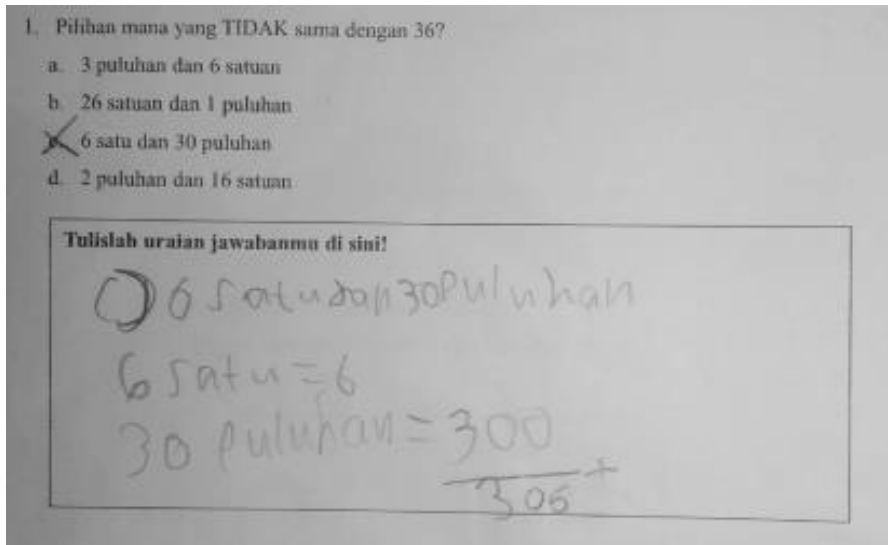 1. Pilihan mana yang TIDAK sama dengan 36?
a. 3 puluhan dan 6 satuan
b. 26 satuan dan 1 puluhan
c. 6 satu dan 30 puluhan
d. 2 puluhan dan 16 satuan
Tulislah uraian jawabanmu di sini!
6 satu dan 30 Puluhan
6 satu = 6
30 Puluhan = 300
+
306